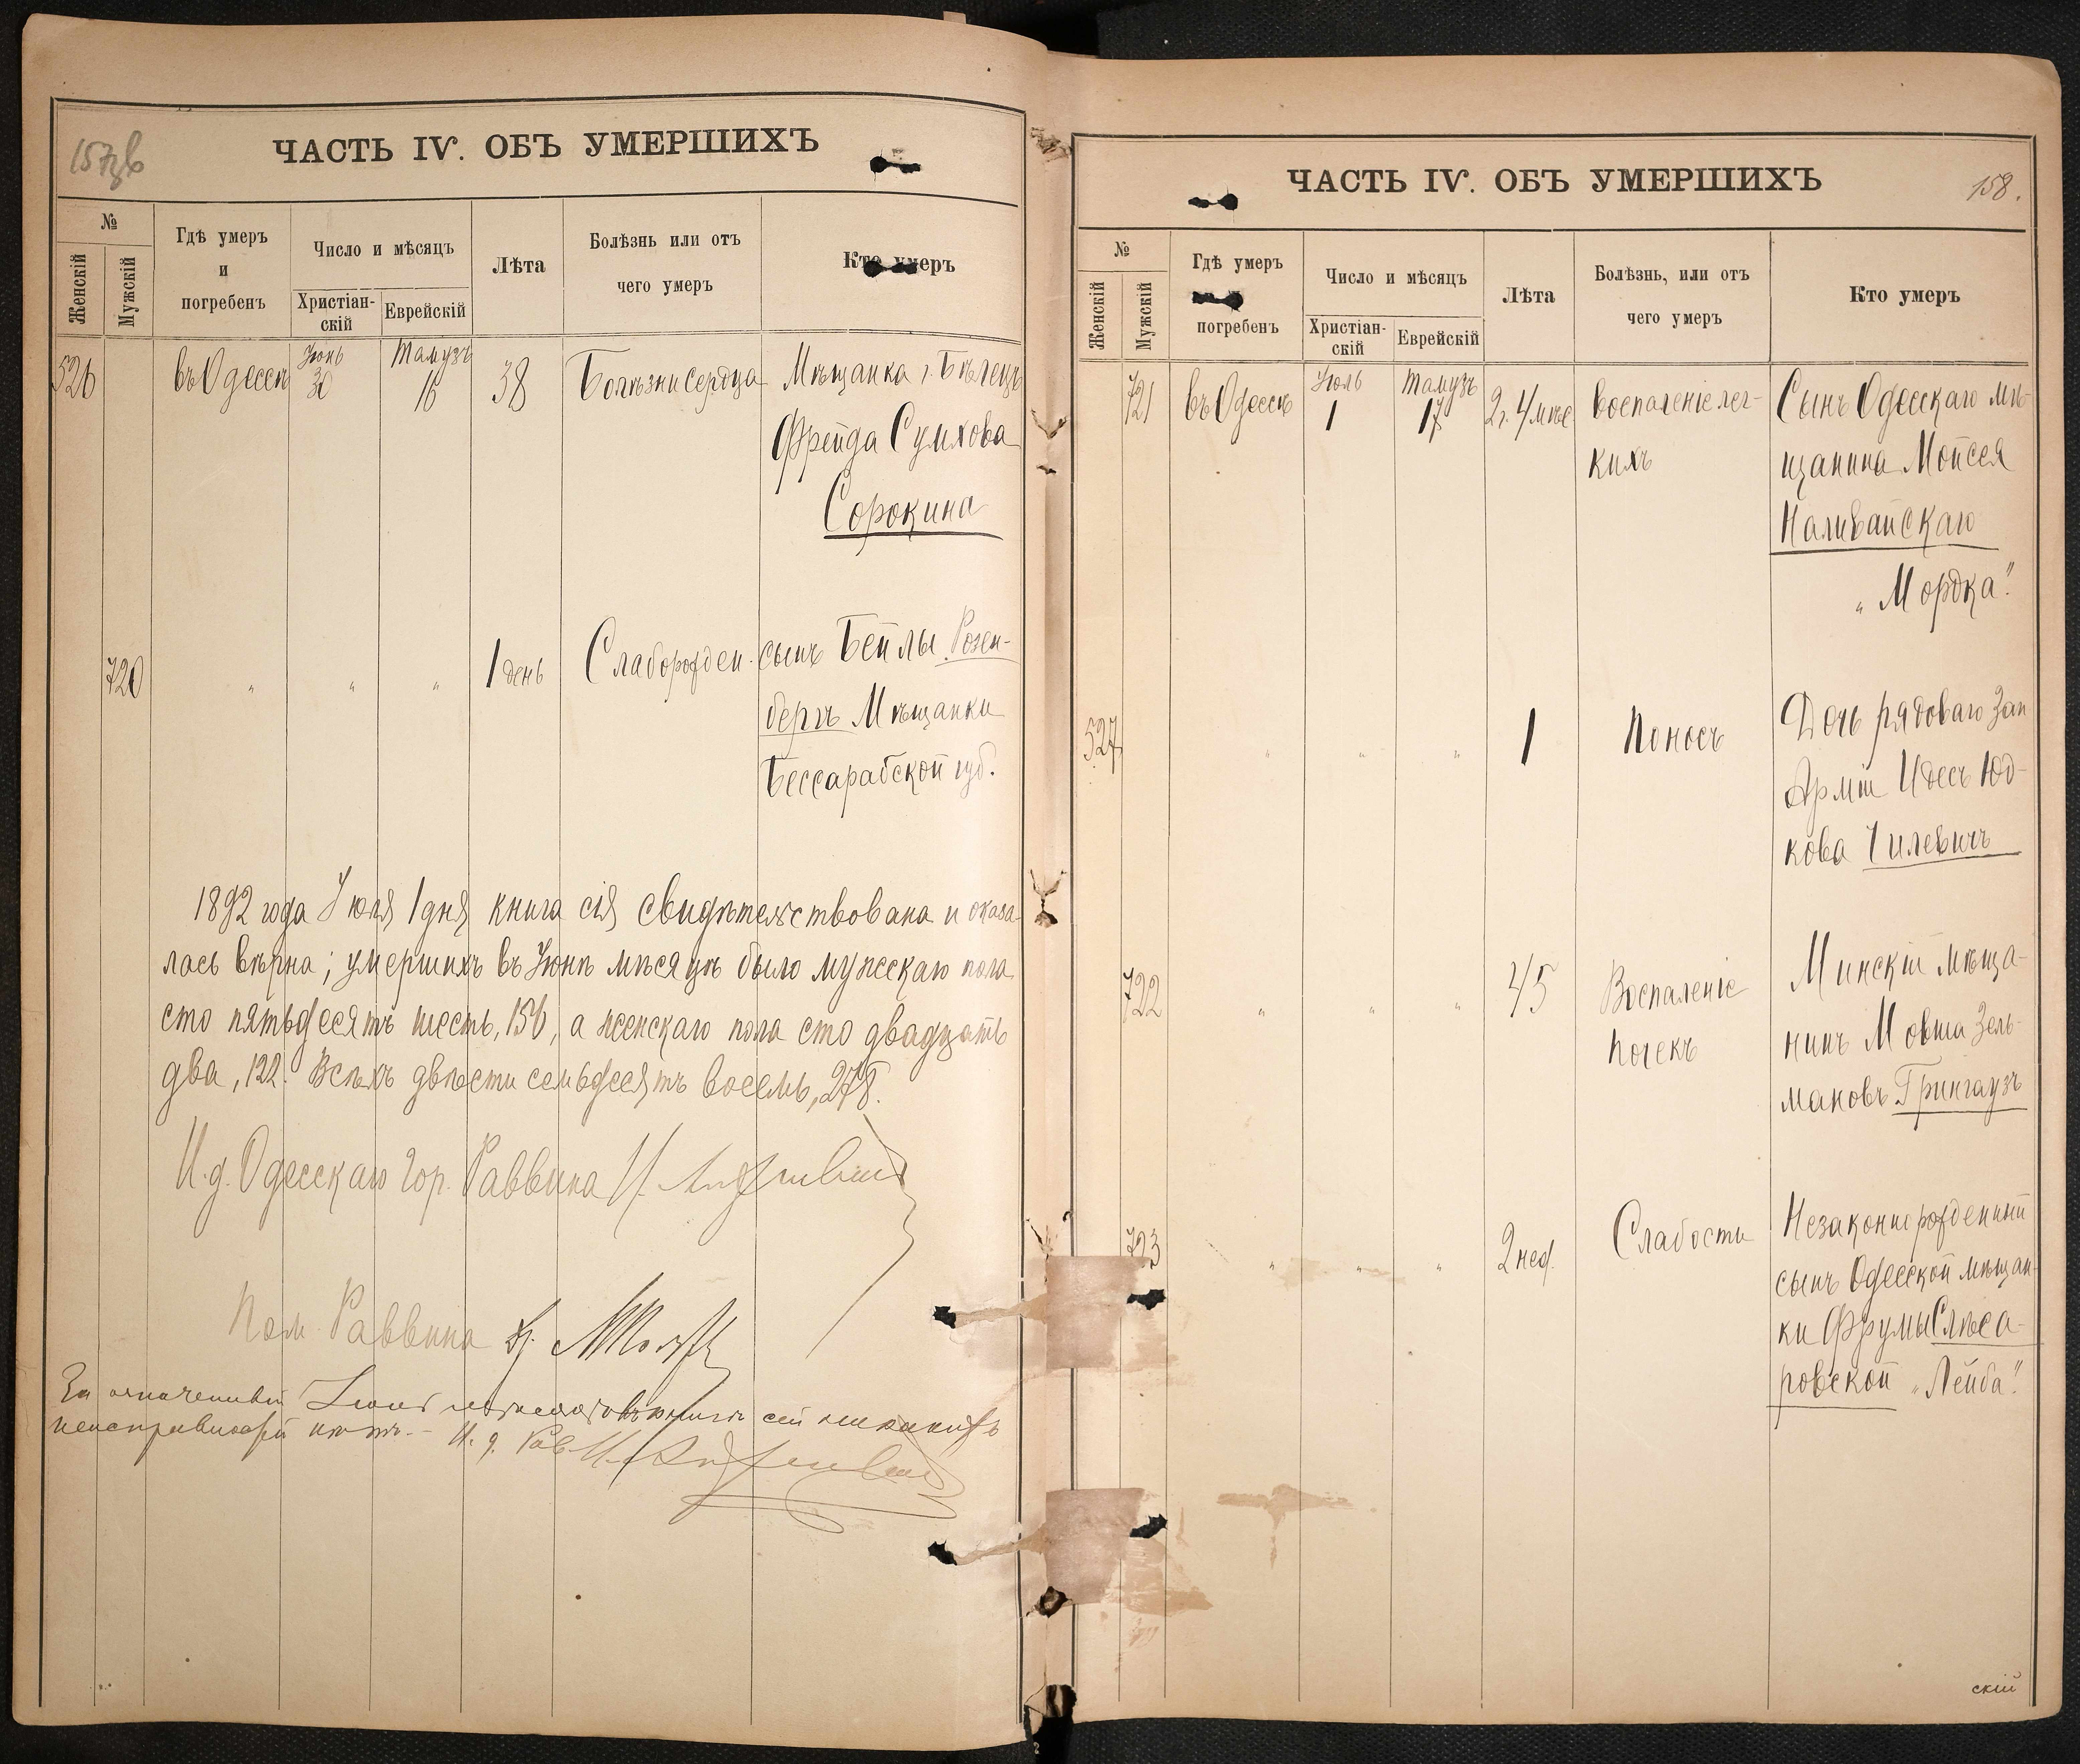 157об
ЧАСТЬ IV. ОБЪ УМЕРШИХЪ
№
Женскій
Мужскій
Гдѣ умеръ
и
погребенъ
Число и мѣсяцъ
Христіан-
скій
Еврейскій
Лѣта
Болѣзнь или отъ
чего умеръ
Кто умеръ
526 въ Одессѣ Іюнь 30 Тамузъ 16 38 Болѣзни сердца Мѣщанка г. Бѣлецъ
Фрейда Сумхова
Сорокина
720 " " " 1 день Слаборожден. сынъ Бейлы Розен-
бергъ Мѣщанки
Бессарабской губ.
1892 года Іюля 1 дня книга сія свидѣтельствована и оказа-
лась вѣрна; умершихъ въ Іюнѣ мѣсяцѣ было мужскаго пола
сто пятьдесятъ шесть, 156, а женскаго пола сто двадцать
два, 122. Всѣхъ двѣсти семьдесятъ восемь, 278.
И.д. Одесскаго Гор. Раввина
Пом. Раввина
За означенный
неисправностей нѣтъ. - И. д. Рав.
ЧАСТЬ IV. ОБЪ УМЕРШИХЪ
158.
№
Женскій
Мужскій
Гдѣ умеръ
погребенъ
Число и мѣсяцъ
Христіан-
скій
Еврейскій
Лѣта
Болѣзнь, или отъ
чего умеръ
Кто умеръ
721 въ Одессѣ Іюль 1 Тамузъ 17 2 г. 4 мѣс. воспаленіе лег-
кихъ
Сынъ Одесскаго мѣ-
щанина Мойсея
Наливайскаго
"Мордка".
527 " " " 1 Поносъ Дочь рядоваго Зап
Арміи Идесъ Юд-
кова Чилевичъ
722 " " " 45 Воспаленіе
почекъ
Минскій мѣща-
нинъ Мовша Зель-
мановъ Грингаузъ
723 " " " 2 нед. Слабости Незаконнорожденный
сынъ Одесской мѣщан-
ки Фрумы Слѣса-
ровской "Лейба".
скій